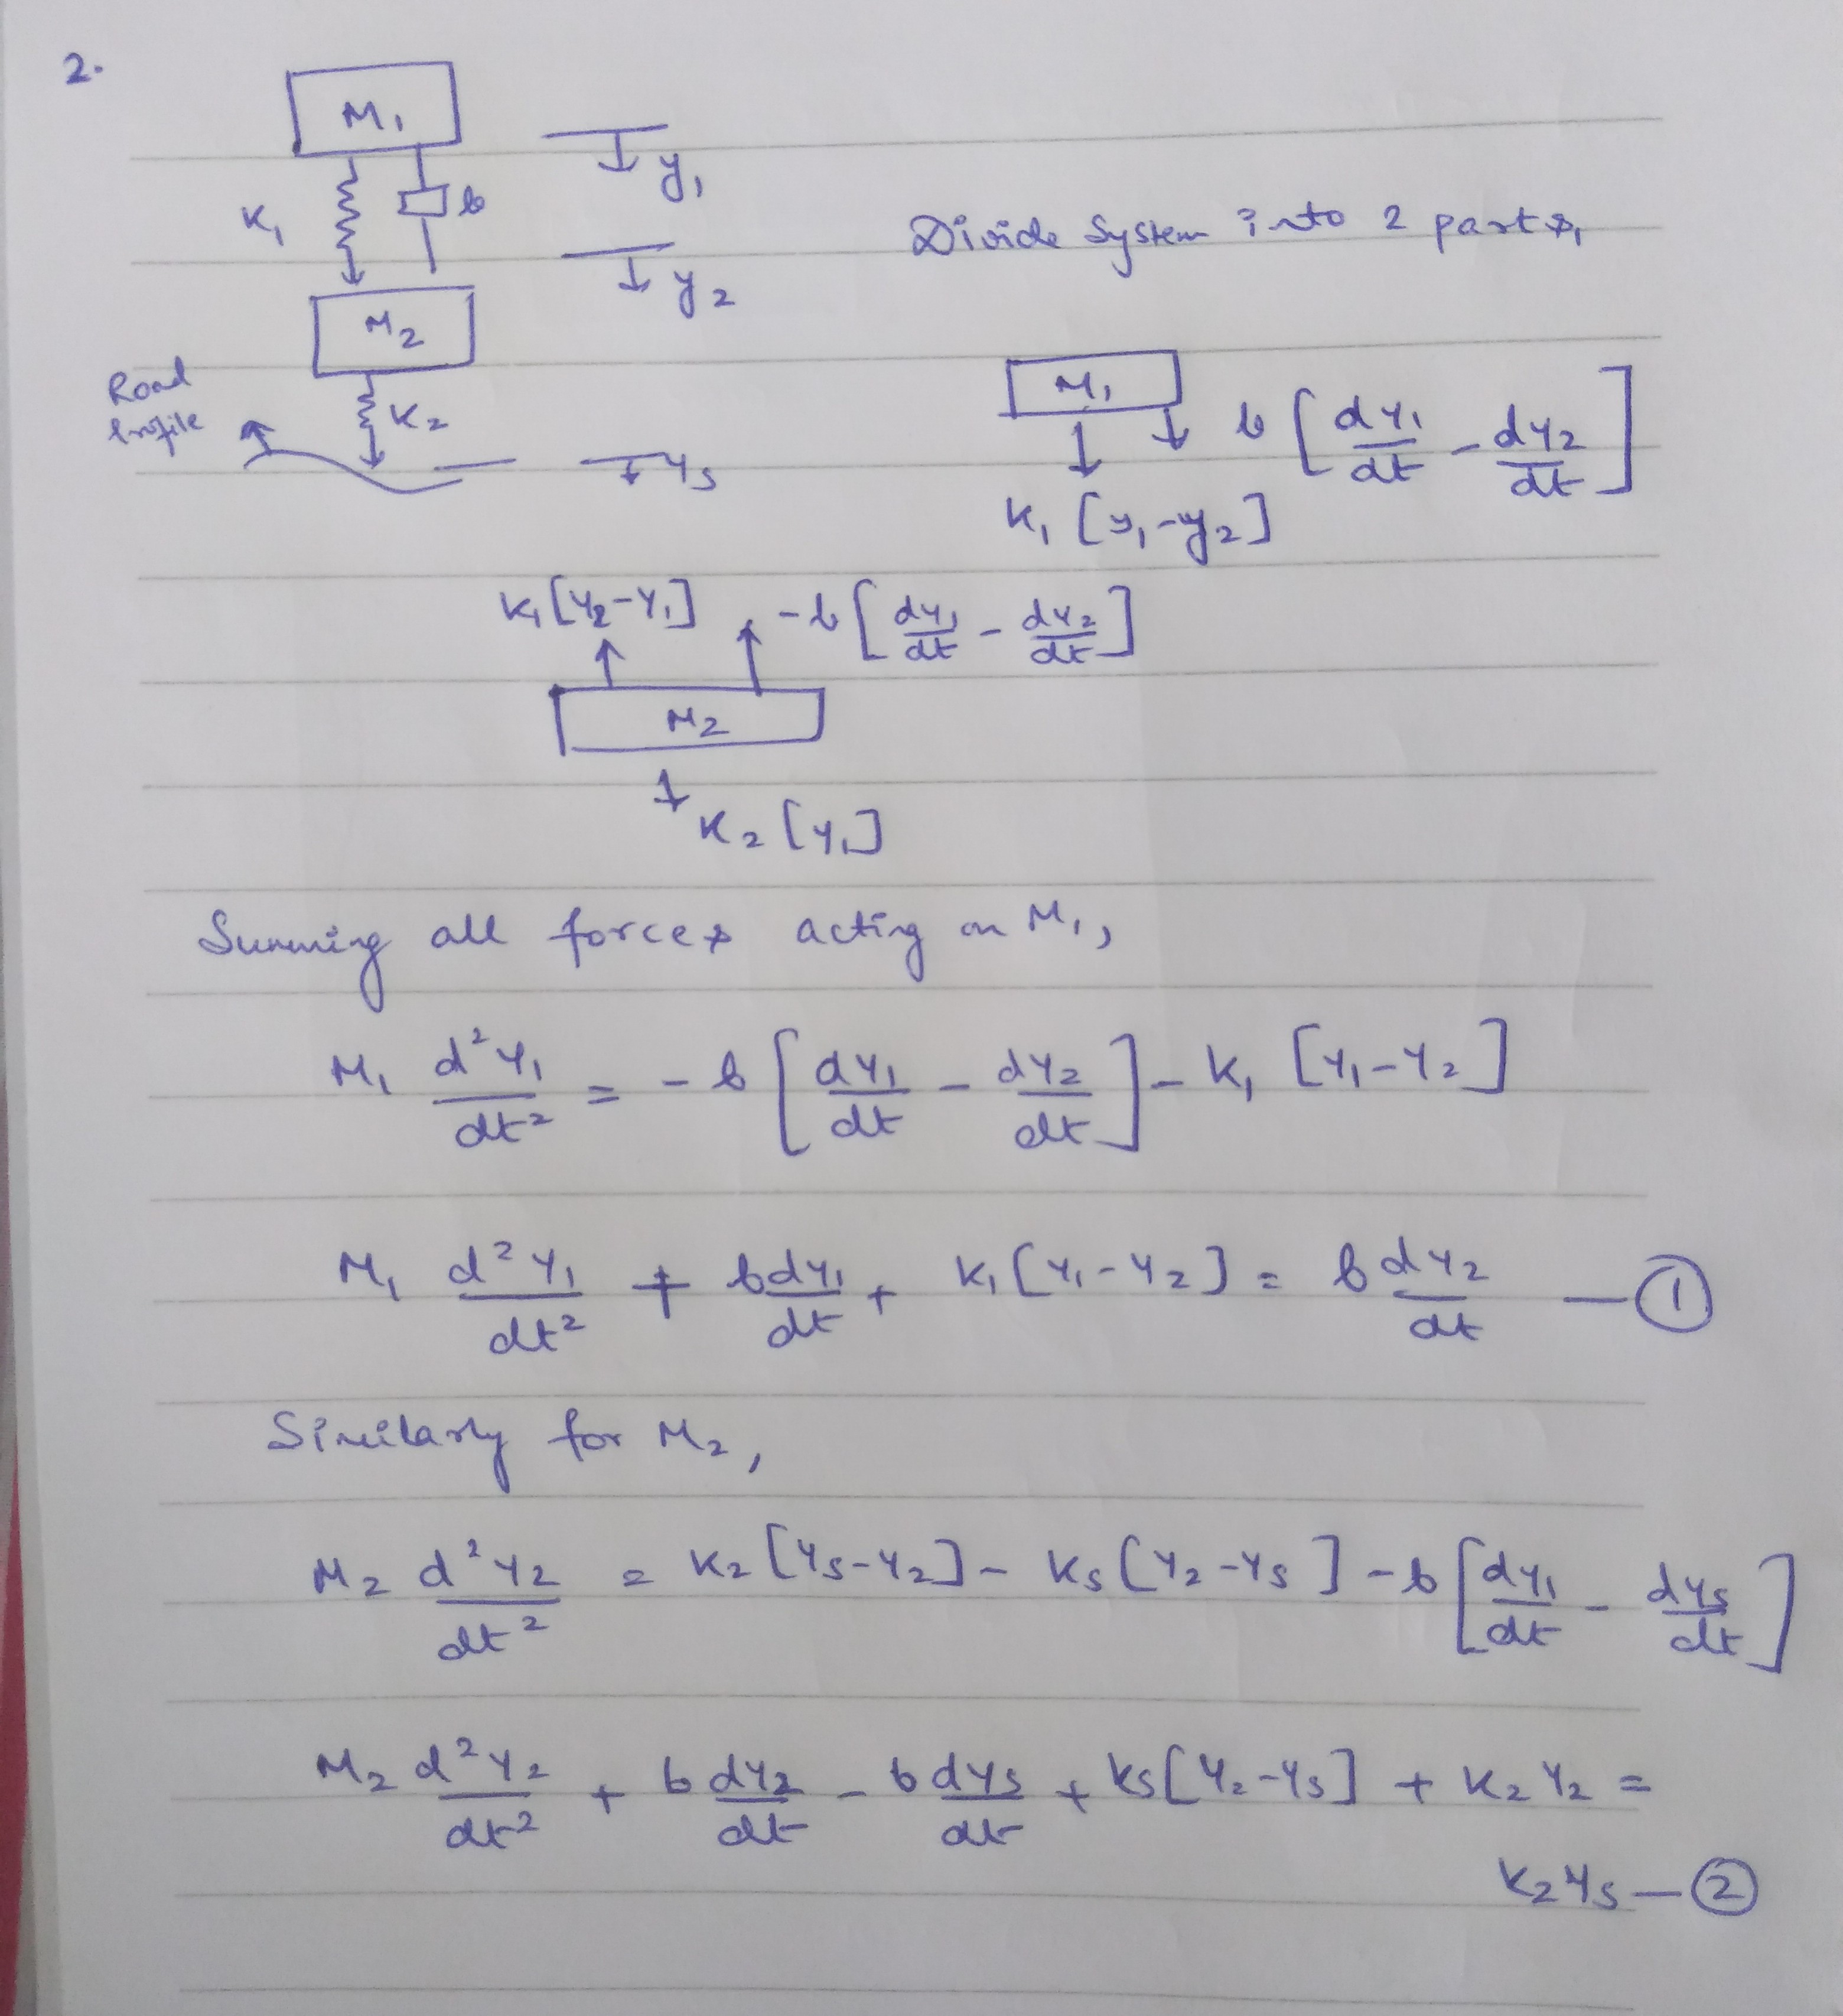 2.
M₁
y₁
K₁
b
Divide System into 2 parts,
y₂
M₂
Road
Profile
K₂
M₁
b [dy₁/dt - dy₂/dt]
ys
K₁ [y₁-y₂]
K₁[y₂-y₁] -b [dy₁/dt - dy₂/dt]
M₂
K₂ [y₁]
Summing all forces acting on M₁,
M₁ d²y₁/dt² = - b [dy₁/dt - dy₂/dt] - K₁ [y₁-y₂]
M₁ d²y₁/dt² + b dy₁/dt + K₁ [y₁-y₂] = b dy₂/dt — ①
Similarly for M₂,
M₂ d²y₂/dt² = K₂ [ys-y₂] - Ks [y₂-ys] - b [dy₁/dt - dys/dt]
M₂ d²y₂/dt² + b dy₂/dt - b dys/dt + Ks[y₂-ys] + K₂ y₂ =
K₂ys — ②